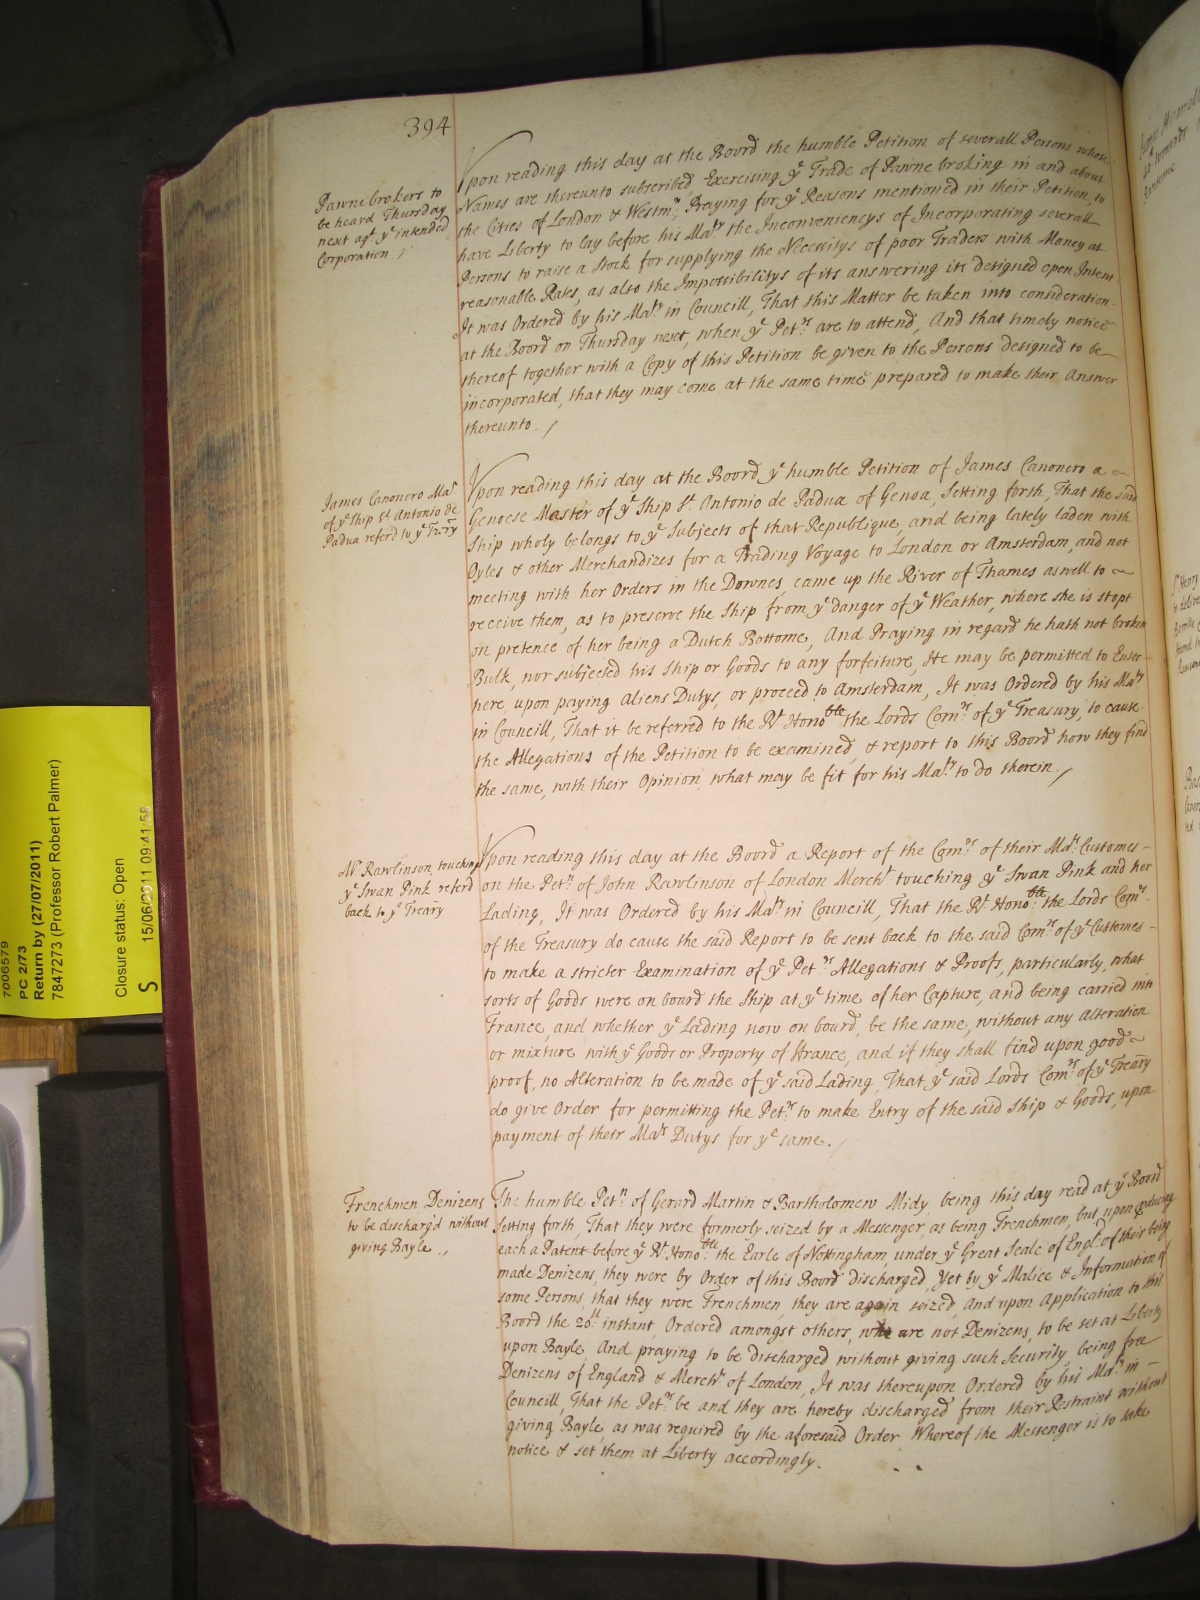 394
Pawnebrokers to
be heard Thursday
next agt. ye intended
Corporation. /
Vpon reading this day at the Board the humble Petition of severall Persons whose
Names are thereunto subscribed, Exercising ye Trade of Pawne broking in and about
the Cities of London & Westmr, Praying for ye Reasons mentioned in their Petition, to
have Liberty to lay before his Maty the Inconveniencys of Incorporating severall
Persons to raise a Stock for supplying the Necessitys of poor Traders with Money at
reasonable Rates, as also the Impossibilitys of its answering its designed open Intent
It was Ordered by his Maty in Councill, That this Matter be taken into consideration
at the Board on Thursday next, when ye Petrs are to attend, And that timely notice
thereof together with a Copy of this Petition be given to the Persons designed to be
incorporated, that they may come at the same time prepared to make their Answer
thereunto. /
James Canonero Mar
of ye Ship St Antonio de
Padua referd to ye Trēry
Vpon reading this day at the Board ye humble Petition of James Canonero a
Genoese Master of ye Ship St. Antonio de Padua of Genoa, Setting forth, That the said
Ship wholy belongs to ye Subjects of that Republique, and being lately laden with
Oyles & other Merchandizes for a Trading Voyage to London or Amsterdam, and not
meeting with her Orders in the Downes, came up the River of Thames aswell to
receive them, as to preserve the Ship from ye danger of ye Weather, where she is stopt
on pretence of her being a Dutch Bottome, And Praying in regard he hath not broken
Bulk, nor subjected his Ship or Goods to any forfeiture, He may be permitted to Enter
here, upon paying Aliens Dutys, or proceed to Amsterdam, It was Ordered by his Maty
in Councill, That it be referred to the Rt Honoble the Lords Comrs of ye Treasury, to cause
the Allegations of the Petition to be examined, & report to this Board how they find
the same, with their Opinion what may be fit for his Maty to do therein. /
Mr Rawlinson, touching
ye Swan Pink referd
back to ye Treāry
Vpon reading this day at the Board a Report of the Comrs of their Mats Customes
on the Petn of John Rawlinson of London Mercht touching ye Swan Pink and her
Lading, It was Ordered by his Maty in Councill, That the Rt Honoble the Lords Comrs
of the Treasury do cause the said Report to be sent back to the said Comrs of ye Customes
to make a stricter Examination of ye Petrs Allegations & Proofs, particularly, what
sorts of Goods were on board the Ship at ye time of her Capture, and being carried into
France, and whether ye Lading now on board, be the same, without any alteration
or mixture with ye Goods or Property of ffrance, and if they shall find upon good
proof, no Alteration to be made of ye said Lading, That ye said Lords Comrs of ye Treāry
do give Order for permitting the Petrs to make Entry of the said Ship & Goods, upon
payment of their Mats Dutys for ye same. /
Frenchmen Denizens
to be dischargd without
giving Bayle ./
The humble Petn of Gerard Martin & Bartholomew Midy being this day read at ye Board
Setting forth, That they were formerly seized by a Messenger, as being Frenchmen, but upon producing
each a Patent before ye Rt Honoble the Earle of Nottingham, under ye Great Seale of Engld of their being
made Denizens, they were by Order of this Board discharged, Yet by ye Malice & Information of
some Persons, that they were Frenchmen, they are again seized, And upon Application to this
Board the 20th instant, Ordered amongst others, who are not Denizens, to be set at Liberty
upon Bayle, And praying to be discharged without giving such Security, being free
Denizens of England & Merchts of London, It was thereupon Ordered by his Maty in
Councill, That the Petrs be and they are hereby discharged from their Restraint without
giving Bayle, as was required by the aforesaid Order, Whereof the Messenger is to take
notice & set them at Liberty accordingly.
7006579
PC 2/73
Return by (27/07/2011)
7847273 (Professor Robert Palmer)
Closure status: Open
S 15/06/2011 09:41:58